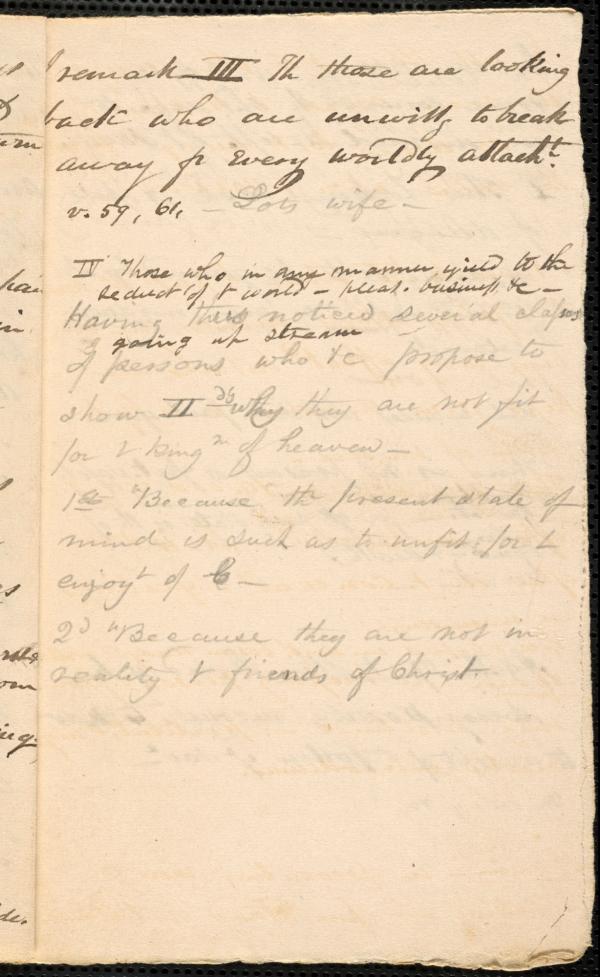 remark III Th those are looking
back who are unwillg to break
away fr every worldly attacht.
v. 59, 61, – Lots wife –
IV Those who in any manner yield to the
seduct of t world – pleas. business &c –
Having thus noticed several classes
going up stream
of persons who &c propose to
show II why they are not fit
for t kingn of heaven –
1st "Because th present state of
mind is such as to unfit for t
enjoyt of –
2d "Because they are not in
reality t friends of Christ.